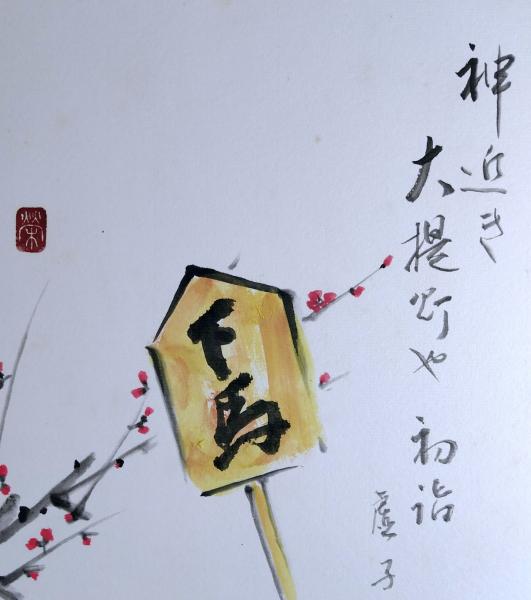 神近き
大提灯や 初詣
虚子
下馬
榮